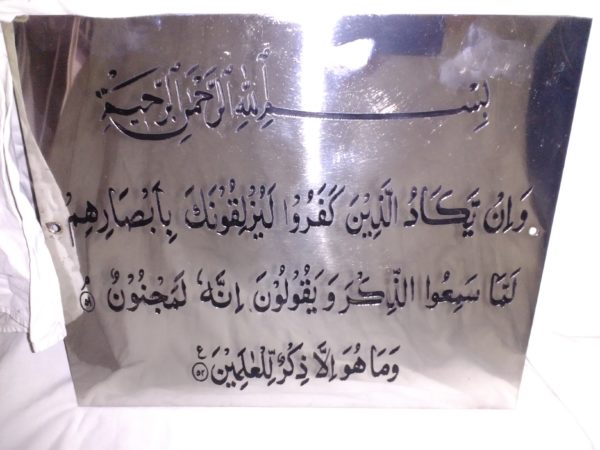 بِسْمِ اللهِ الرَّحْمٰنِ الرَّحِيْمِ
وَاِنْ يَّكَادُ الَّذِيْنَ كَفَرُوْا لَيُزْلِقُوْنَكَ بِاَبْصَارِهِمْ
لَمَّا سَمِعُوا الذِّكْرَ وَيَقُوْلُوْنَ اِنَّهٗ لَمَجْنُوْنٌ ۘ ۵۱
وَمَا هُوَ اِلَّا ذِكْرٌ لِّلْعٰلَمِيْنَ ع ۵۲